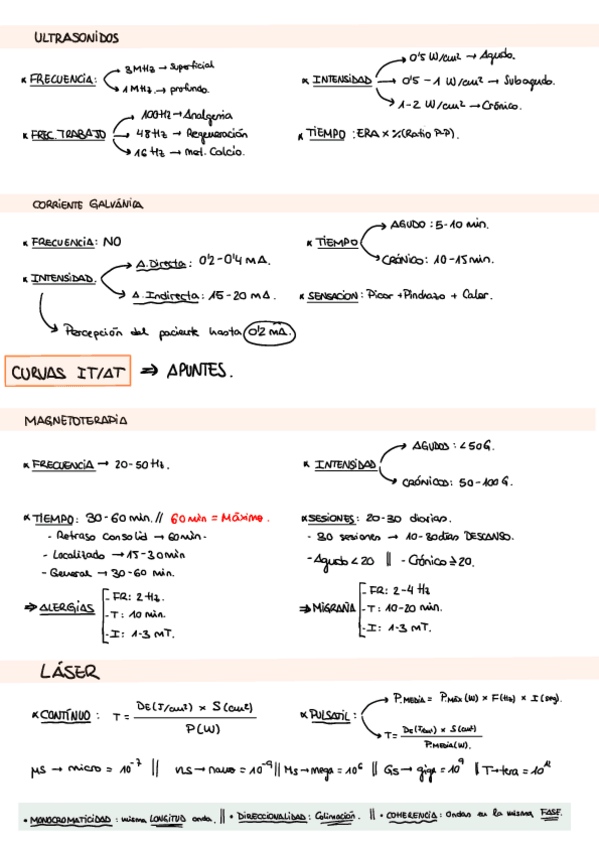 ULTRASONIDOS
* FRECUENCIA: 3MHz → superficial
1MHz → profundo.
* INTENSIDAD → 0'5 W/cm² → Agudo.
→ 0'5 - 1 W/cm² → Subagudo.
→ 1-2 W/cm² → Crónico.
* FREC. TRABAJO → 100Hz → Analgesia
→ 48Hz → Regeneración
→ 16Hz → met. Calcio.
* TIEMPO: ERA x %(Ratio P-P).
CORRIENTE GALVÁNICA
* FRECUENCIA: NO
* TIEMPO → AGUDO: 5-10 min.
→ CRÓNICO: 10-15min.
* INTENSIDAD. → A. Directa: 0'2-0'4 mA.
→ A. Indirecta: 15-20 mA.
* SENSACION: Picor + Pinchazo + Calor.
→ Percepción del paciente hasta 0'2 mA.
CURVAS IT/AT ⇒ APUNTES.
MAGNETOTERAPIA
* FRECUENCIA → 20-50Hz.
* INTENSIDAD → AGUDOS: <50G.
→ CRÓNICOS: 50-100G.
* TIEMPO: 30-60 min. // 60min = Máximo.
- Retraso Consolid → 60min.
- Localizado → 15-30min
- General → 30-60 min.
* SESIONES: 20-30 diarias.
- 30 sesiones → 10-20días DESCANSO.
- Agudo < 20 || - Crónico ≥ 20.
⇒ ALERGIAS - FR: 2 Hz.
- T: 10 min.
- I: 1-3 mT.
⇒ MIGRAÑA - FR: 2-4 Hz
- T: 10-20 min.
- I: 1-3 mT.
LÁSER
* CONTÍNUO: T = DE(J/cm²) x S(cm²)
P(W)
* PULSATIL: → P.MEDIA = P.MÁX (W) x F(Hz) x I (seg).
→ T = DE(J/cm²) x S(cm²)
P.MEDIA(W).
μs → micro = 10⁻⁷ || ns → nano = 10⁻⁹ || Ms → mega = 10⁶ || Gs → giga = 10⁹ || T → tera = 10¹²
• MONOCROMATICIDAD: misma LONGITUD onda. || • DIRECCIONALIDAD: Colimación. || • COHERENCIA: Ondas en la misma FASE.